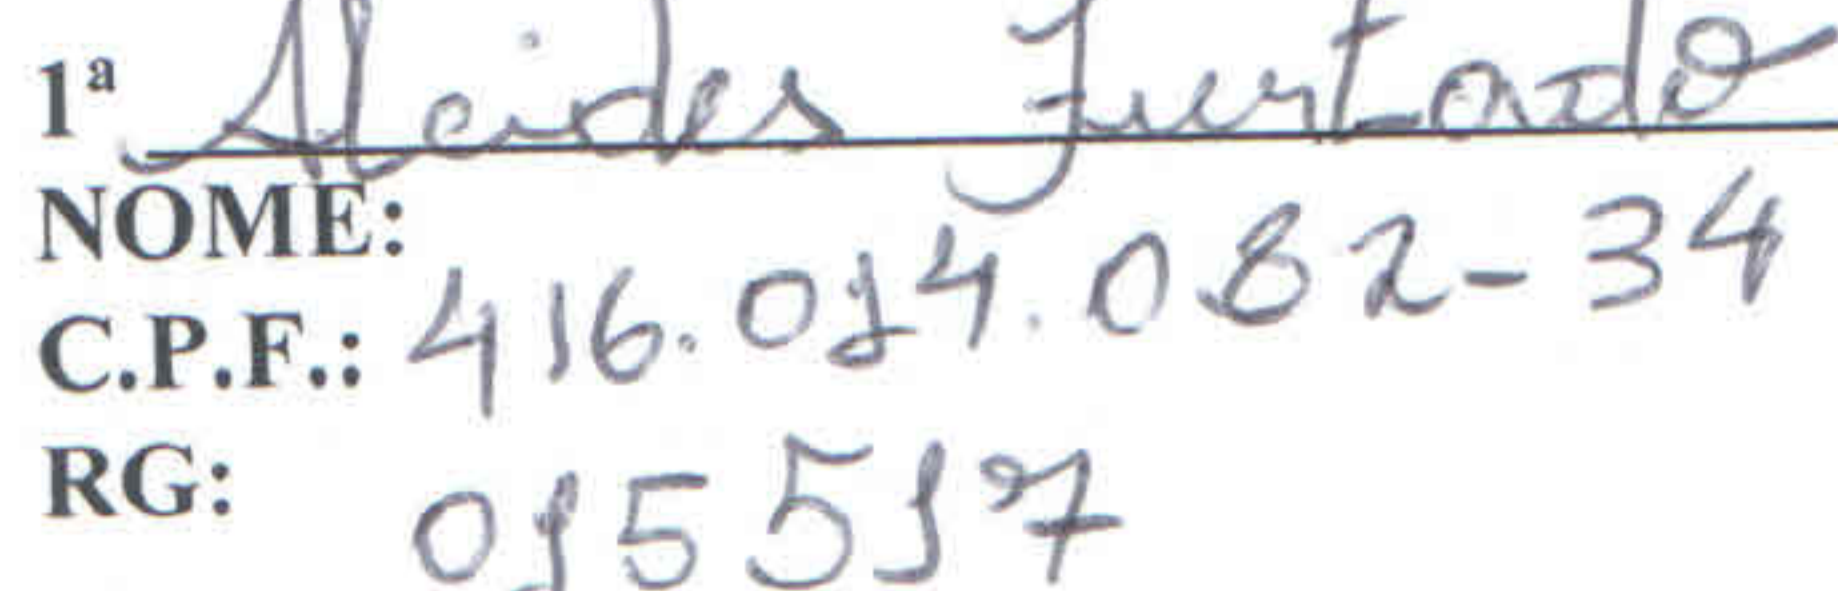 1ª Alcides Furtado
NOME:
C.P.F.: 416.014.082-34
RG: 015517